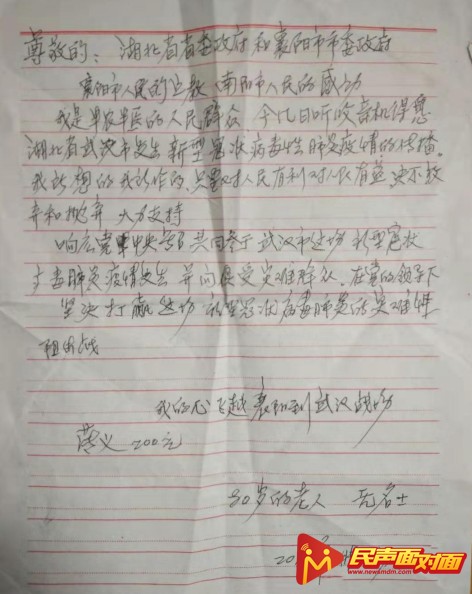 尊敬的：湖北省省委政府和襄阳市市委政府
襄阳市人民的 南阳市人民的感动
我是 的人民群众 今几日听收音机得悉
湖北省武汉市发生新型冠状病毒性肺炎疫情的传播。
我所想的我所作的，只要对人民有利对人民有益决不放
弃和抛弃 大力支持
响应党中央号召共同参于武汉市这场新型冠状
毒肺炎疫情发生 并向受灾难群众。在党的领导下
坚决打赢这场新型冠状病毒肺炎的灾难性
阻击战
我的心飞越襄阳到武汉战场
200元
80岁的老人 无名士
20
民声面对面
www.newsmdm.com